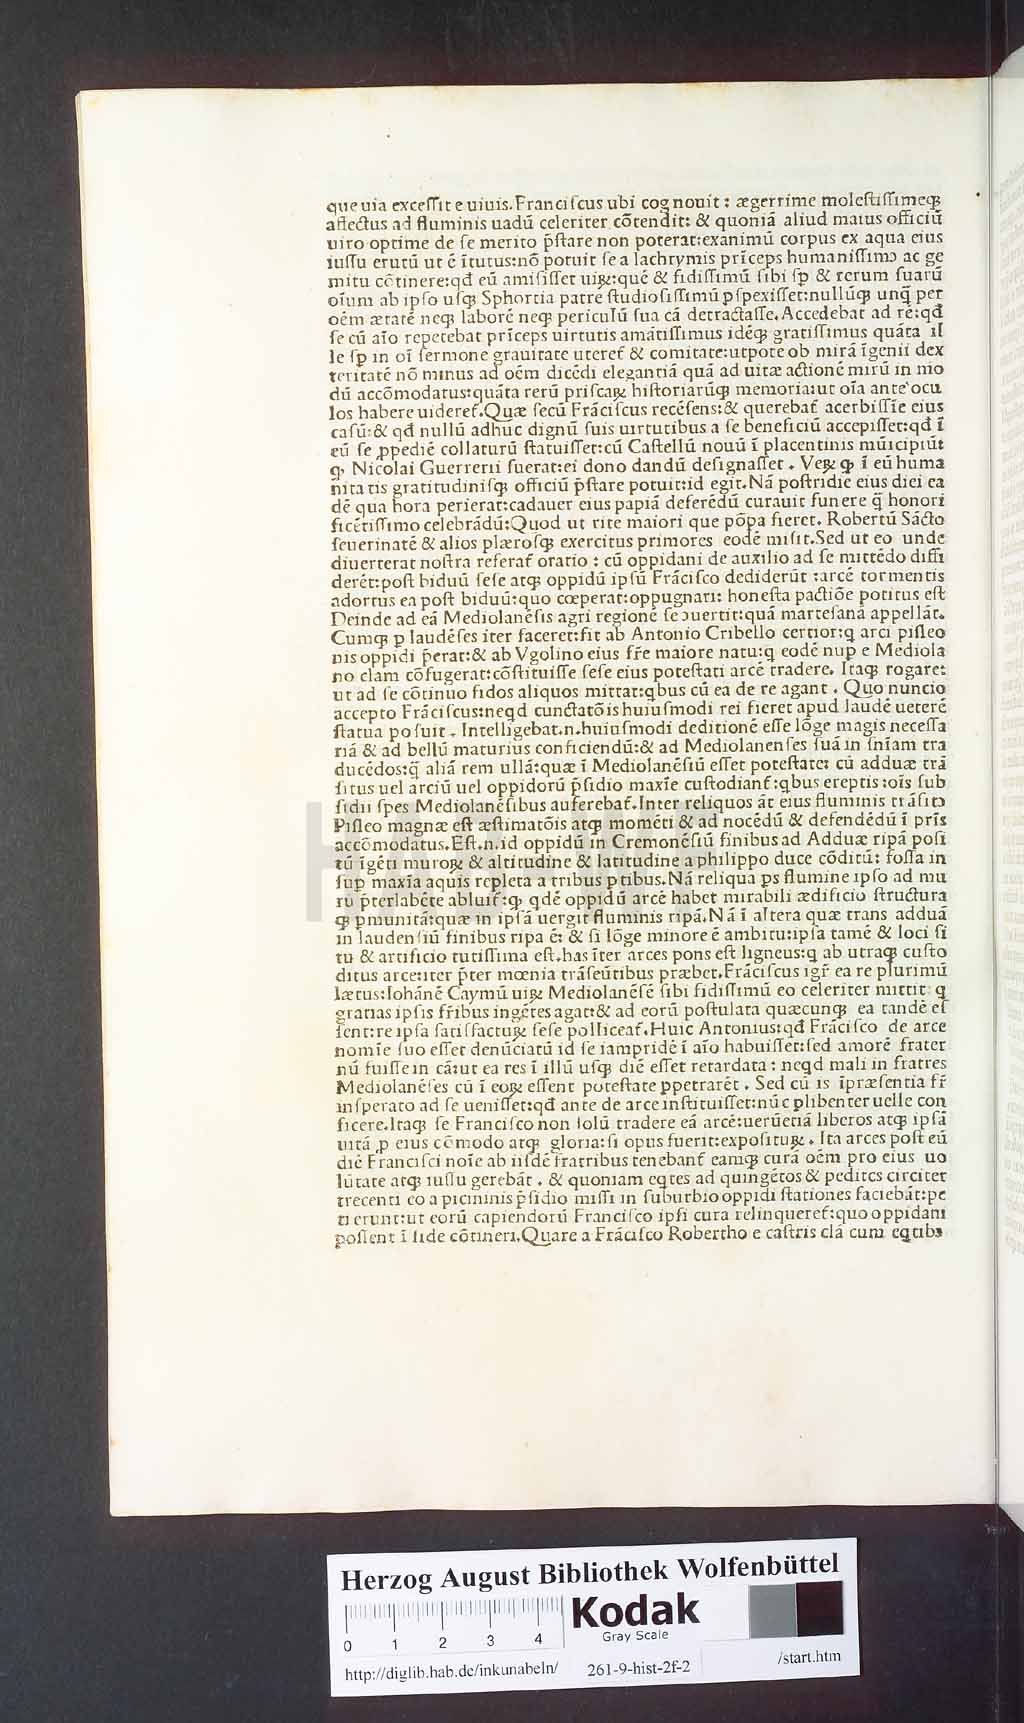 que uia exceſſit e uiuis.Franciſcus ubi cognouit : ægerrime moleſtiſſimeqꝫ
affectus ad fluminis uadū celeriter cōtendit: & quoniā aliud maius officiū
uiro optime de ſe merito p̄ſtare non poterat:exanimū corpus ex aqua eius
iuſſu erutū ut ē ītutus:nō potuit ſe a lachrymis prīceps humaniſſimꝰ ac ge
mitu cōtinere:qđ eū amiſiſſet uiꝝ:quē & fidiſſimū ſibi ſp̄ & rerum ſuarū
oīum ab ipſo uſqꝫ Sphortia patre ſtudioſiſſimū ꝑſpexiſſet:nullūqꝫ unq̄ per
oēm ætatē neqꝫ laborē neqꝫ periculū ſua cā detractaſſe.Accedebat ad rē:qđ
ſe cū aīo repetebat prīceps uirtutis amātiſſimus idēqꝫ gratiſſimus quāta il
le ſp̄ in oī ſermone grauitate uteret̄ & comitate:utpote ob mirā īgenii dex
teritatē nō minus ad oēm dicēdi elegantiā quā ad uitæ actionē mirū in mo
dū accōmodatus:quāta rerū priſcaꝝ hiſtoriarūqꝫ memoria:ut oīa ante ocu
los habere uideret̄.Quæ ſecū Frāciſcus recēſens:& querebat̄ acerbiſſīe eius
caſū:& qđ nullū adhuc dignū ſuis uirtutibus a ſe beneficiū accepiſſet:qđ ī
eū ſe ꝓpediē collaturū ſtatuiſſet:cū Caſtellū nouū ī placentinis mūicipiūt
ꝙ Nicolai Guerrerii fuerat:ei dono dandū deſignaſſet . Veꝝ ꝙ ī eū huma
nitatis gratitudiniſqꝫ officiū p̄ſtare potuit:id egit.Nā poſtridie eius diei ea
dē qua hora perierat:cadauer eius papiā deferēdū curauit funere q̄ honori
ficētiſſimo celebrādū:Quod ut rite maiori que pōpa fieret. Robertū Sācto
ſeuerinatē & alios plæroſqꝫ exercitus primores eodē miſit.Sed ut eo unde
diuerterat noſtra referat̄ oratio : cū oppidani de auxilio ad ſe mittēdo diffi
derēt:poſt biduū ſeſe atqꝫ oppidū ipſū Frāciſco dediderūt :arcē tormentis
adortus ea poſt biduū:quo cœperat:oppugnari: honeſta pactiōe potitus eſt
Deinde ad eā Mediolanēſis agri regionē ſe ɔuertit:quā marteſanā appellāt.
Cumqꝫ ꝑ laudēſes iter faceret:fit ab Antonio Cribello certior:q arci piſleo
nis oppidi p̄erat:& ab Vgolino eius fr̄e maiore natu:q eodē nuꝑ e Mediola
no clam cōfugerat:cōſtituiſſe ſeſe eius poteſtati arcē tradere. Itaqꝫ rogare:
ut ad ſe cōtinuo fidos aliquos mittat:qbus cū ea de re agant . Quo nuncio
accepto Frāciſcus:neqd cunctatōis huiuſmodi rei fieret apud laudē ueterē
ſtatiua poſuit . Intelligebat.n.huiuſmodi deditionē eſſe lōge magis neceſſa
riā & ad bellū maturius conficiendū:& ad Mediolanenſes ſuā in ſnīam tra
ducēdos:q̄ aliā rem ullā:quæ ī Mediolanēſiū eſſet poteſtate: cū adduæ trā
ſitus uel arciū uel oppidorū p̄ſidio maxīe cuſtodiant̄:qbus ereptis:oīs ſub
ſidii ſpes Mediolanēſibus auferebat̄.Inter reliquos āt eius fluminis trāſitꝰ
Piſleo magnæ eſt æſtimatōis atqꝫ momēti & ad nocēdū & defendēdū ī prīs
accōmodatus.Eſt.n.id oppidū in Cremonēſiū finibus ad Adduæ ripā poſi
tū īgēti muroꝝ & altitudine & latitudine a philippo duce cōditū: foſſa in
ſuꝑ maxīa aquis repleta a tribus ꝑtibus.Nā reliqua ꝑs flumine ipſo ad mu
rū p̄terlabēte abluit̄:ꝙ qdē oppidū arcē habet mirabili ædificio ſtructura
qꝫ ꝑmunitā:quæ in ipſā uergit fluminis ripā.Nā ī altera quæ trans adduā
in laudenſiū finibus ripa ē: & ſi lōge minore ē ambitu:ipſa tamē & loci ſi
tu & artificio tutiſſima eſt.has īter arces pons eſt ligneus:q ab utraqꝫ cuſto
ditus arce:iter p̄ter mœnia trāſeūtibus præbet.Frāciſcus igr̄ ea re plurimū
lætus:Iohānē Caymū uiꝝ Mediolanēſē ſibi fidiſſimū eo celeriter mittit: q
gratias ipſis fr̄ibus ingētes agat:& ad eorū poſtulata quæcunqꝫ ea tandē eſ
ſent:re ipſa ſatiſfactuꝝ ſeſe polliceat̄.Huic Antonius:qđ Frāciſco de arce
nomīe ſuo eſſet denūciatū id ſe iampridē ī aīo habuiſſet:ſed amorē frater
nū fuiſſe in cā:ut ea res ī illū uſqꝫ diē eſſet retardata : neqd mali in fratres
Mediolanēſes cū ī eoꝝ eſſent poteſtate ꝑpetrarēt . Sed cū is īpræſentia fr̄
inſperato ad ſe ueniſſet:qđ ante de arce inſtituiſſet:nūc ꝑlibenter uelle con
ficere.Itaqꝫ ſe Franciſco non ſolū tradere eā arcē:uerūetiā liberos atqꝫ ipſā
uitā ꝓ eius cōmodo atqꝫ gloria:ſi opus fuerit:expoſituꝝ . Ita arces poſt eū
diē Franciſci noīe ab iiſdē fratribus tenebant̄ eamqꝫ curā oēm pro eius uo
lūtate atqꝫ iuſſu gerebāt . & quoniam eqtes ad quingētos & pedites circiter
trecenti eo a picininis p̄ſidio miſſi in ſuburbio oppidi ſtationes faciebāt:pe
tierunt:ut eorū capiendorū Franciſco ipſi cura relinqueret̄:quo oppidani
poſſent ī fide cōtineri.Quare a Frāciſco Robertho e caſtris clā cum eqtibꝰ
HAB-WF
Herzog August Bibliothek Wolfenbüttel
Kodak
Gray Scale
0 1 2 3 4
http://diglib.hab.de/inkunabeln/ 261-9-hist-2f-2 /start.htm